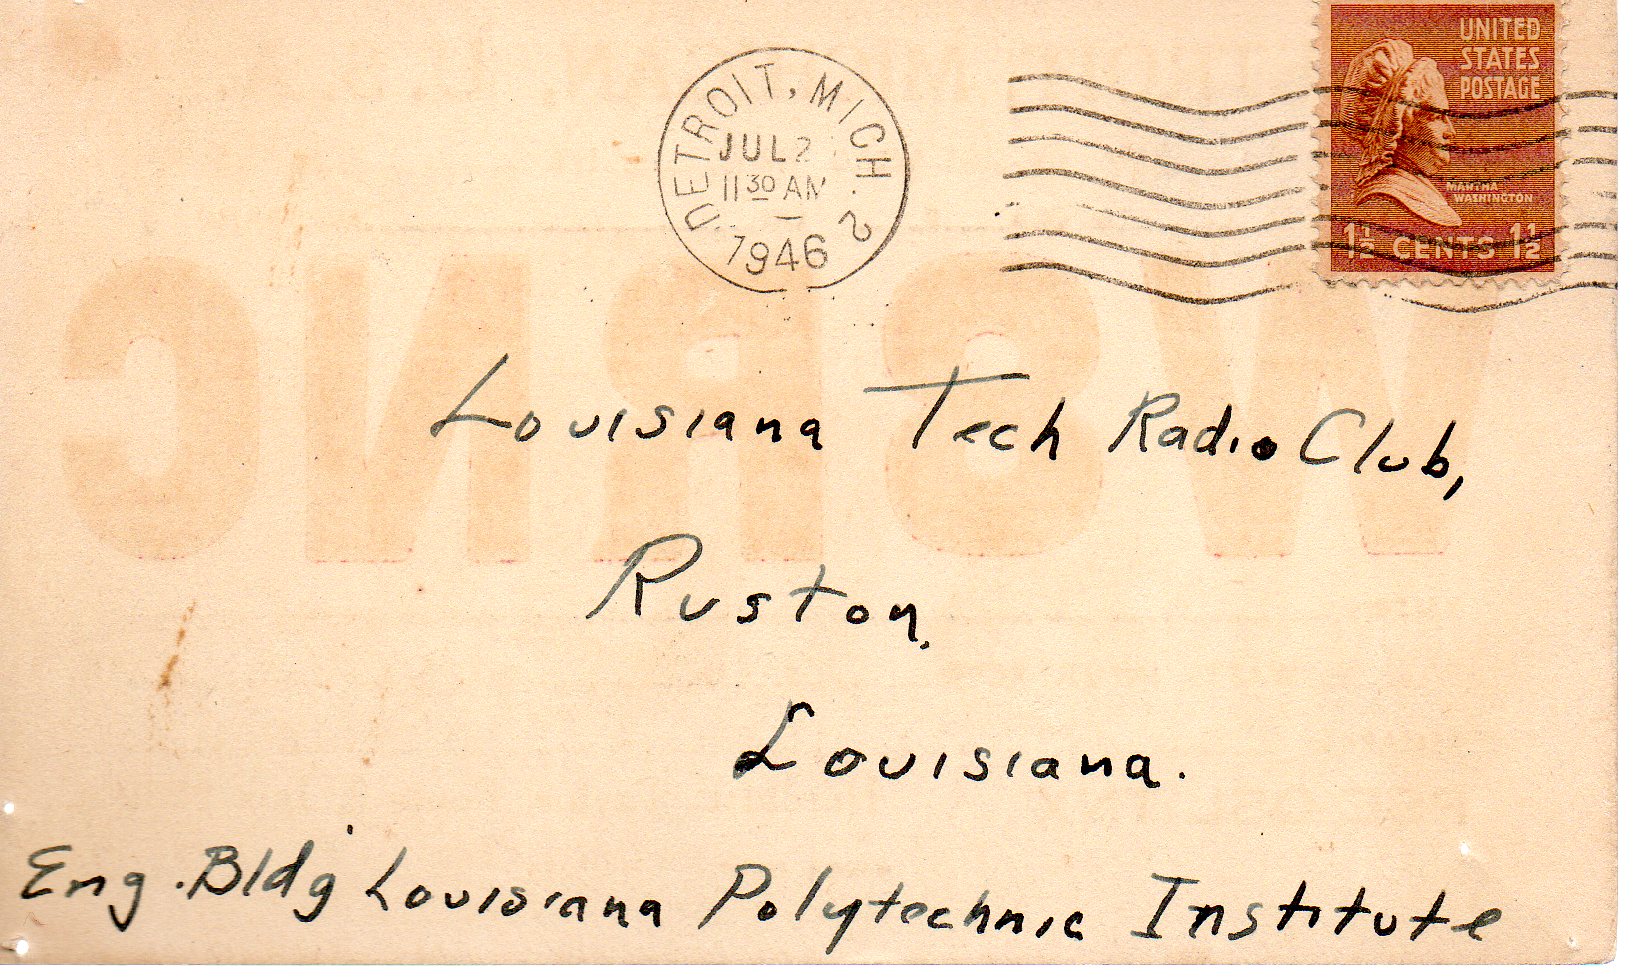 DETROIT, MICH. 2
JUL 2
11 30 AM
1946
UNITED
STATES
POSTAGE
MARTHA
WASHINGTON
1½ CENTS 1½
W8RNC
Louisiana Tech Radio Club,
Ruston.
Louisiana.
Eng. Bldg Louisiana Polytechnic Institute